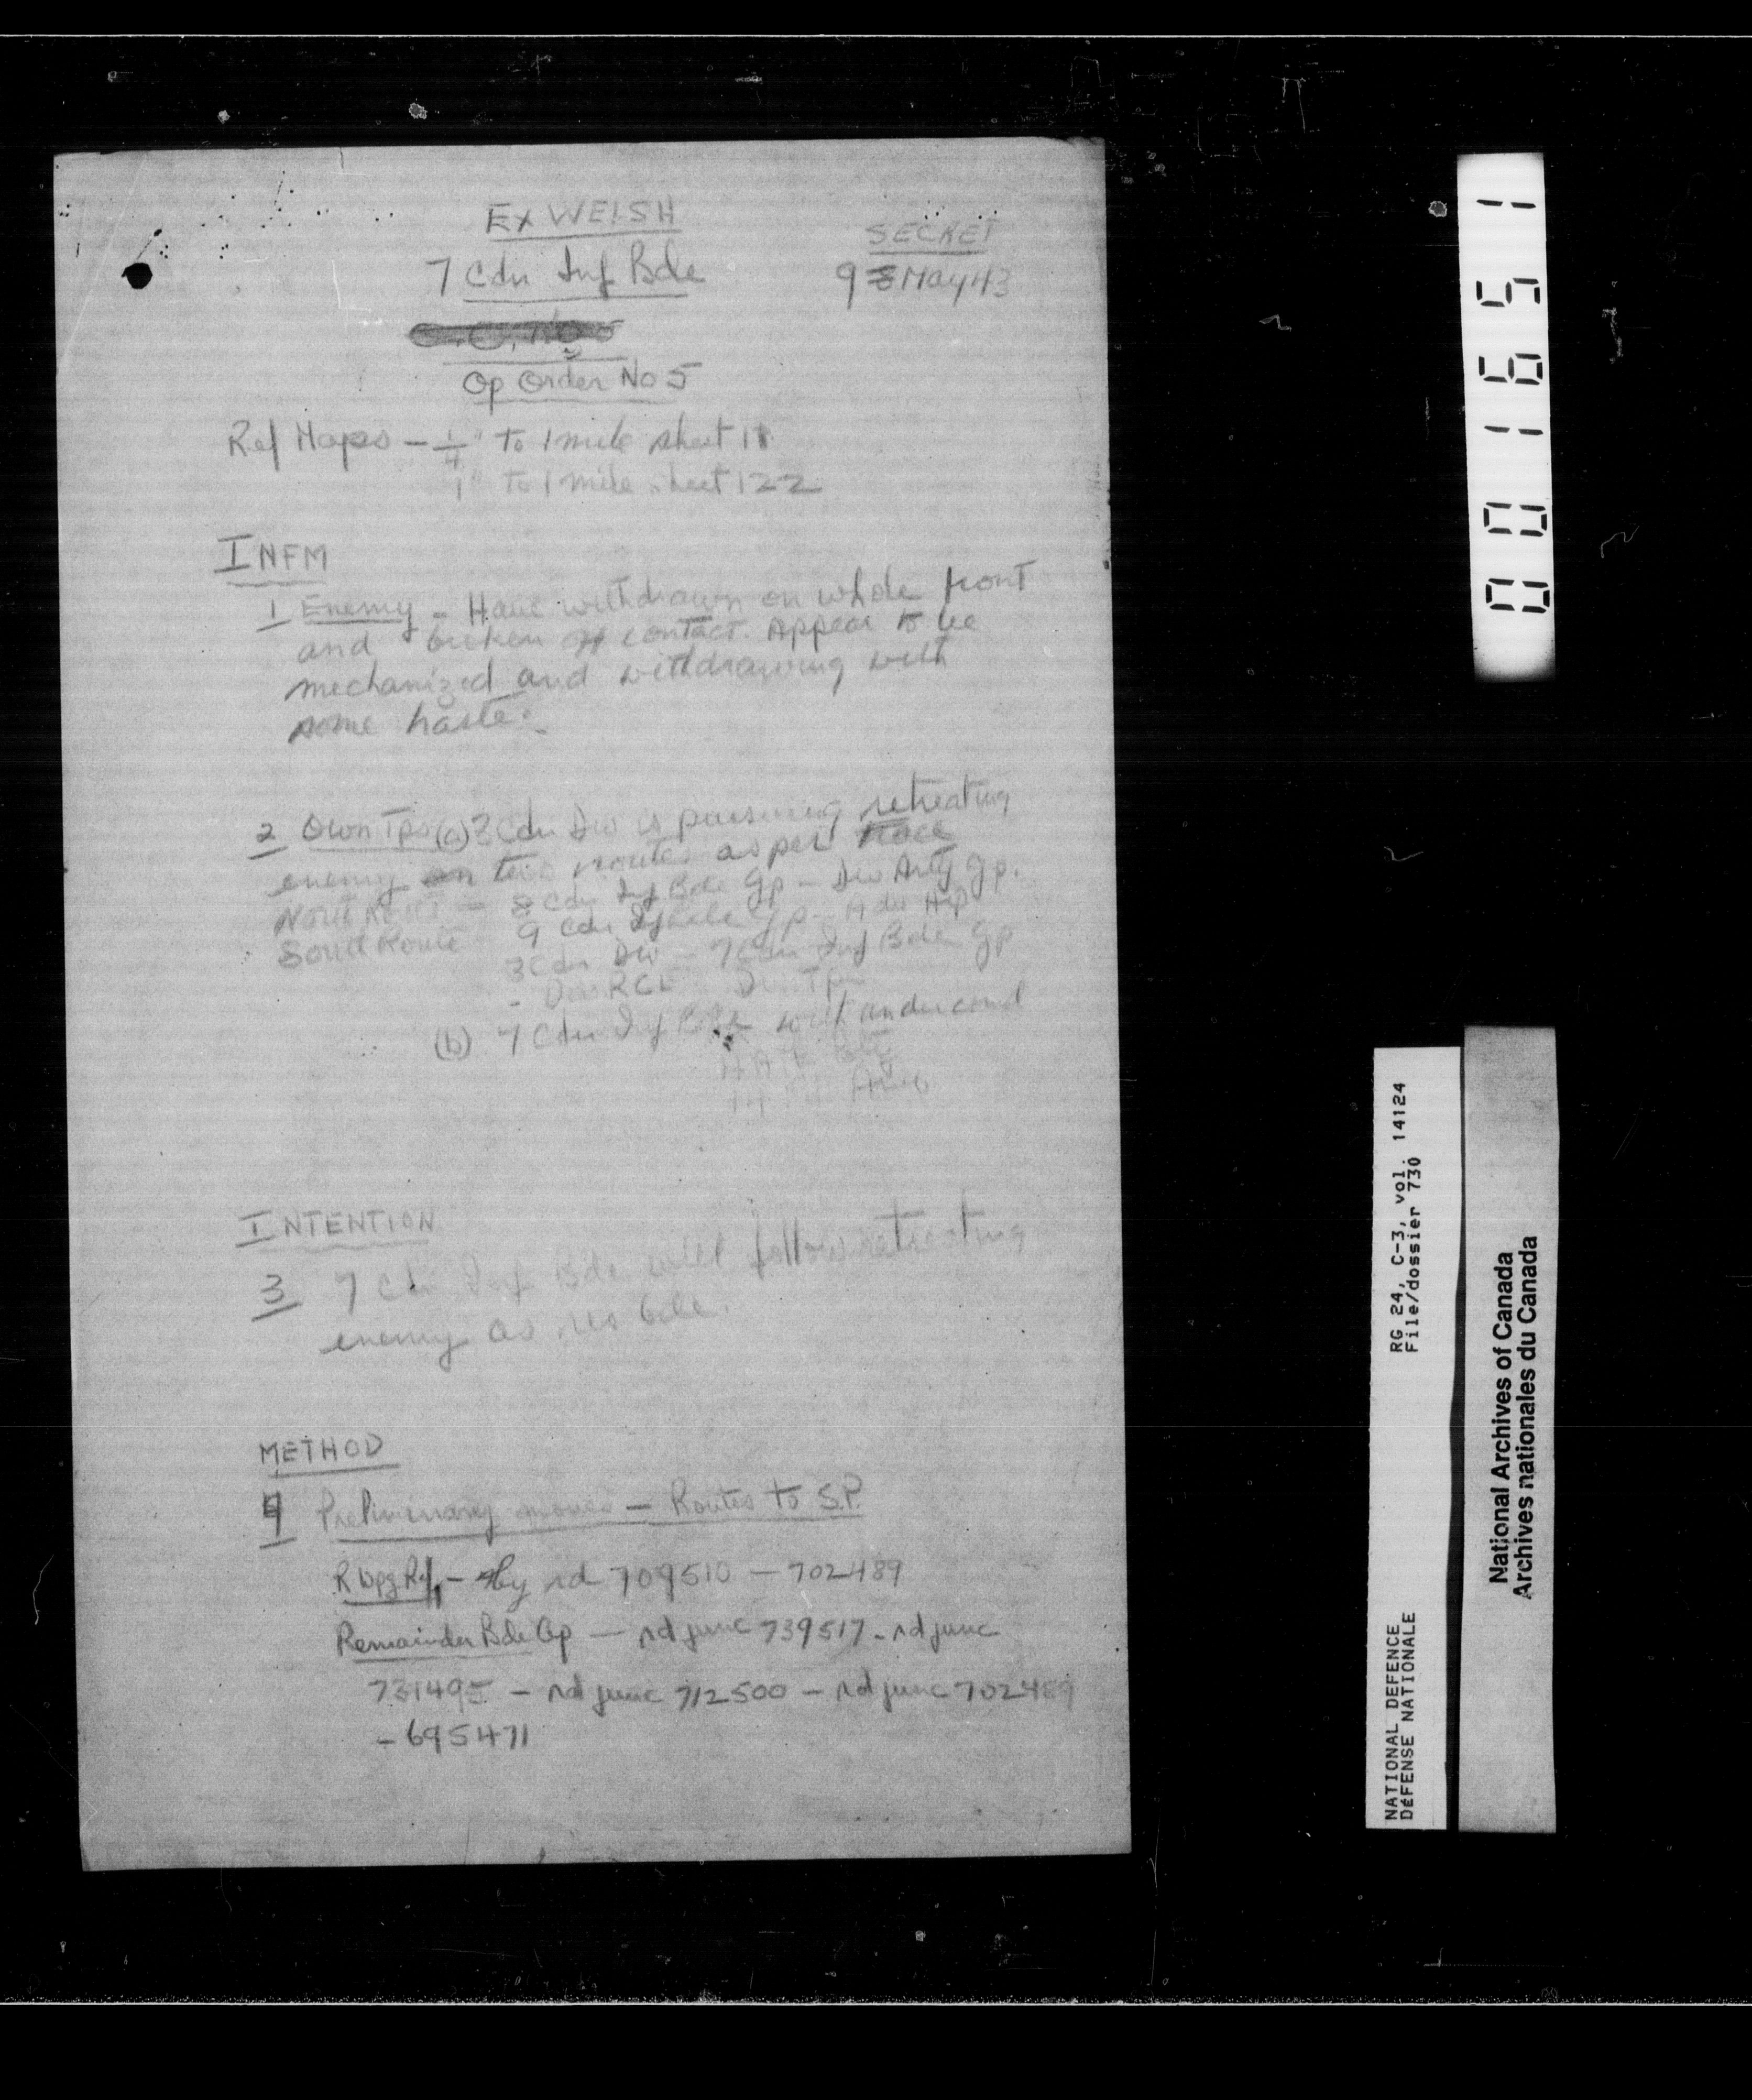 EX WELSH
SECRET
7 Cdn Inf Bde
9 8 May 43
O.O. No 5
Op Order No 5
Ref Maps - 1/4" to 1 mile sheet 11
1" to 1 mile sheet 122
INFM
1 Enemy - Have withdrawn on whole front
and broken off contact. Appear to be
mechanized and withdrawing with
some haste.
2 Own Tps (a) 3 Cdn Div is pursuing retreating
enemy on two routes as per trace
North Route - 8 Cdn Inf Bde Gp - Div Arty Gp.
South Route - 9 Cdn Inf Bde Gp - Adv HQ
3 Cdn Div - 7 Cdn Inf Bde Gp
- Div RCE Div
(b) 7 Cdn Inf Bde with under comd
A Tk Bty
14 Fd Amb
INTENTION
3 7 Cdn Inf Bde will follow retreating
enemy as res bde.
METHOD
4 Preliminary moves - Routes to S.P.
R Wpg Rif - By rd 709510 - 702489
Remainder Bde Gp - rd junc 739517 - rd junc
731495 - rd junc 712500 - rd junc 702489
- 695471
001651
RG 24, C-3, vol. 14124
File/dossier 730
NATIONAL DEFENCE
DÉFENSE NATIONALE
National Archives of Canada
Archives nationales du Canada